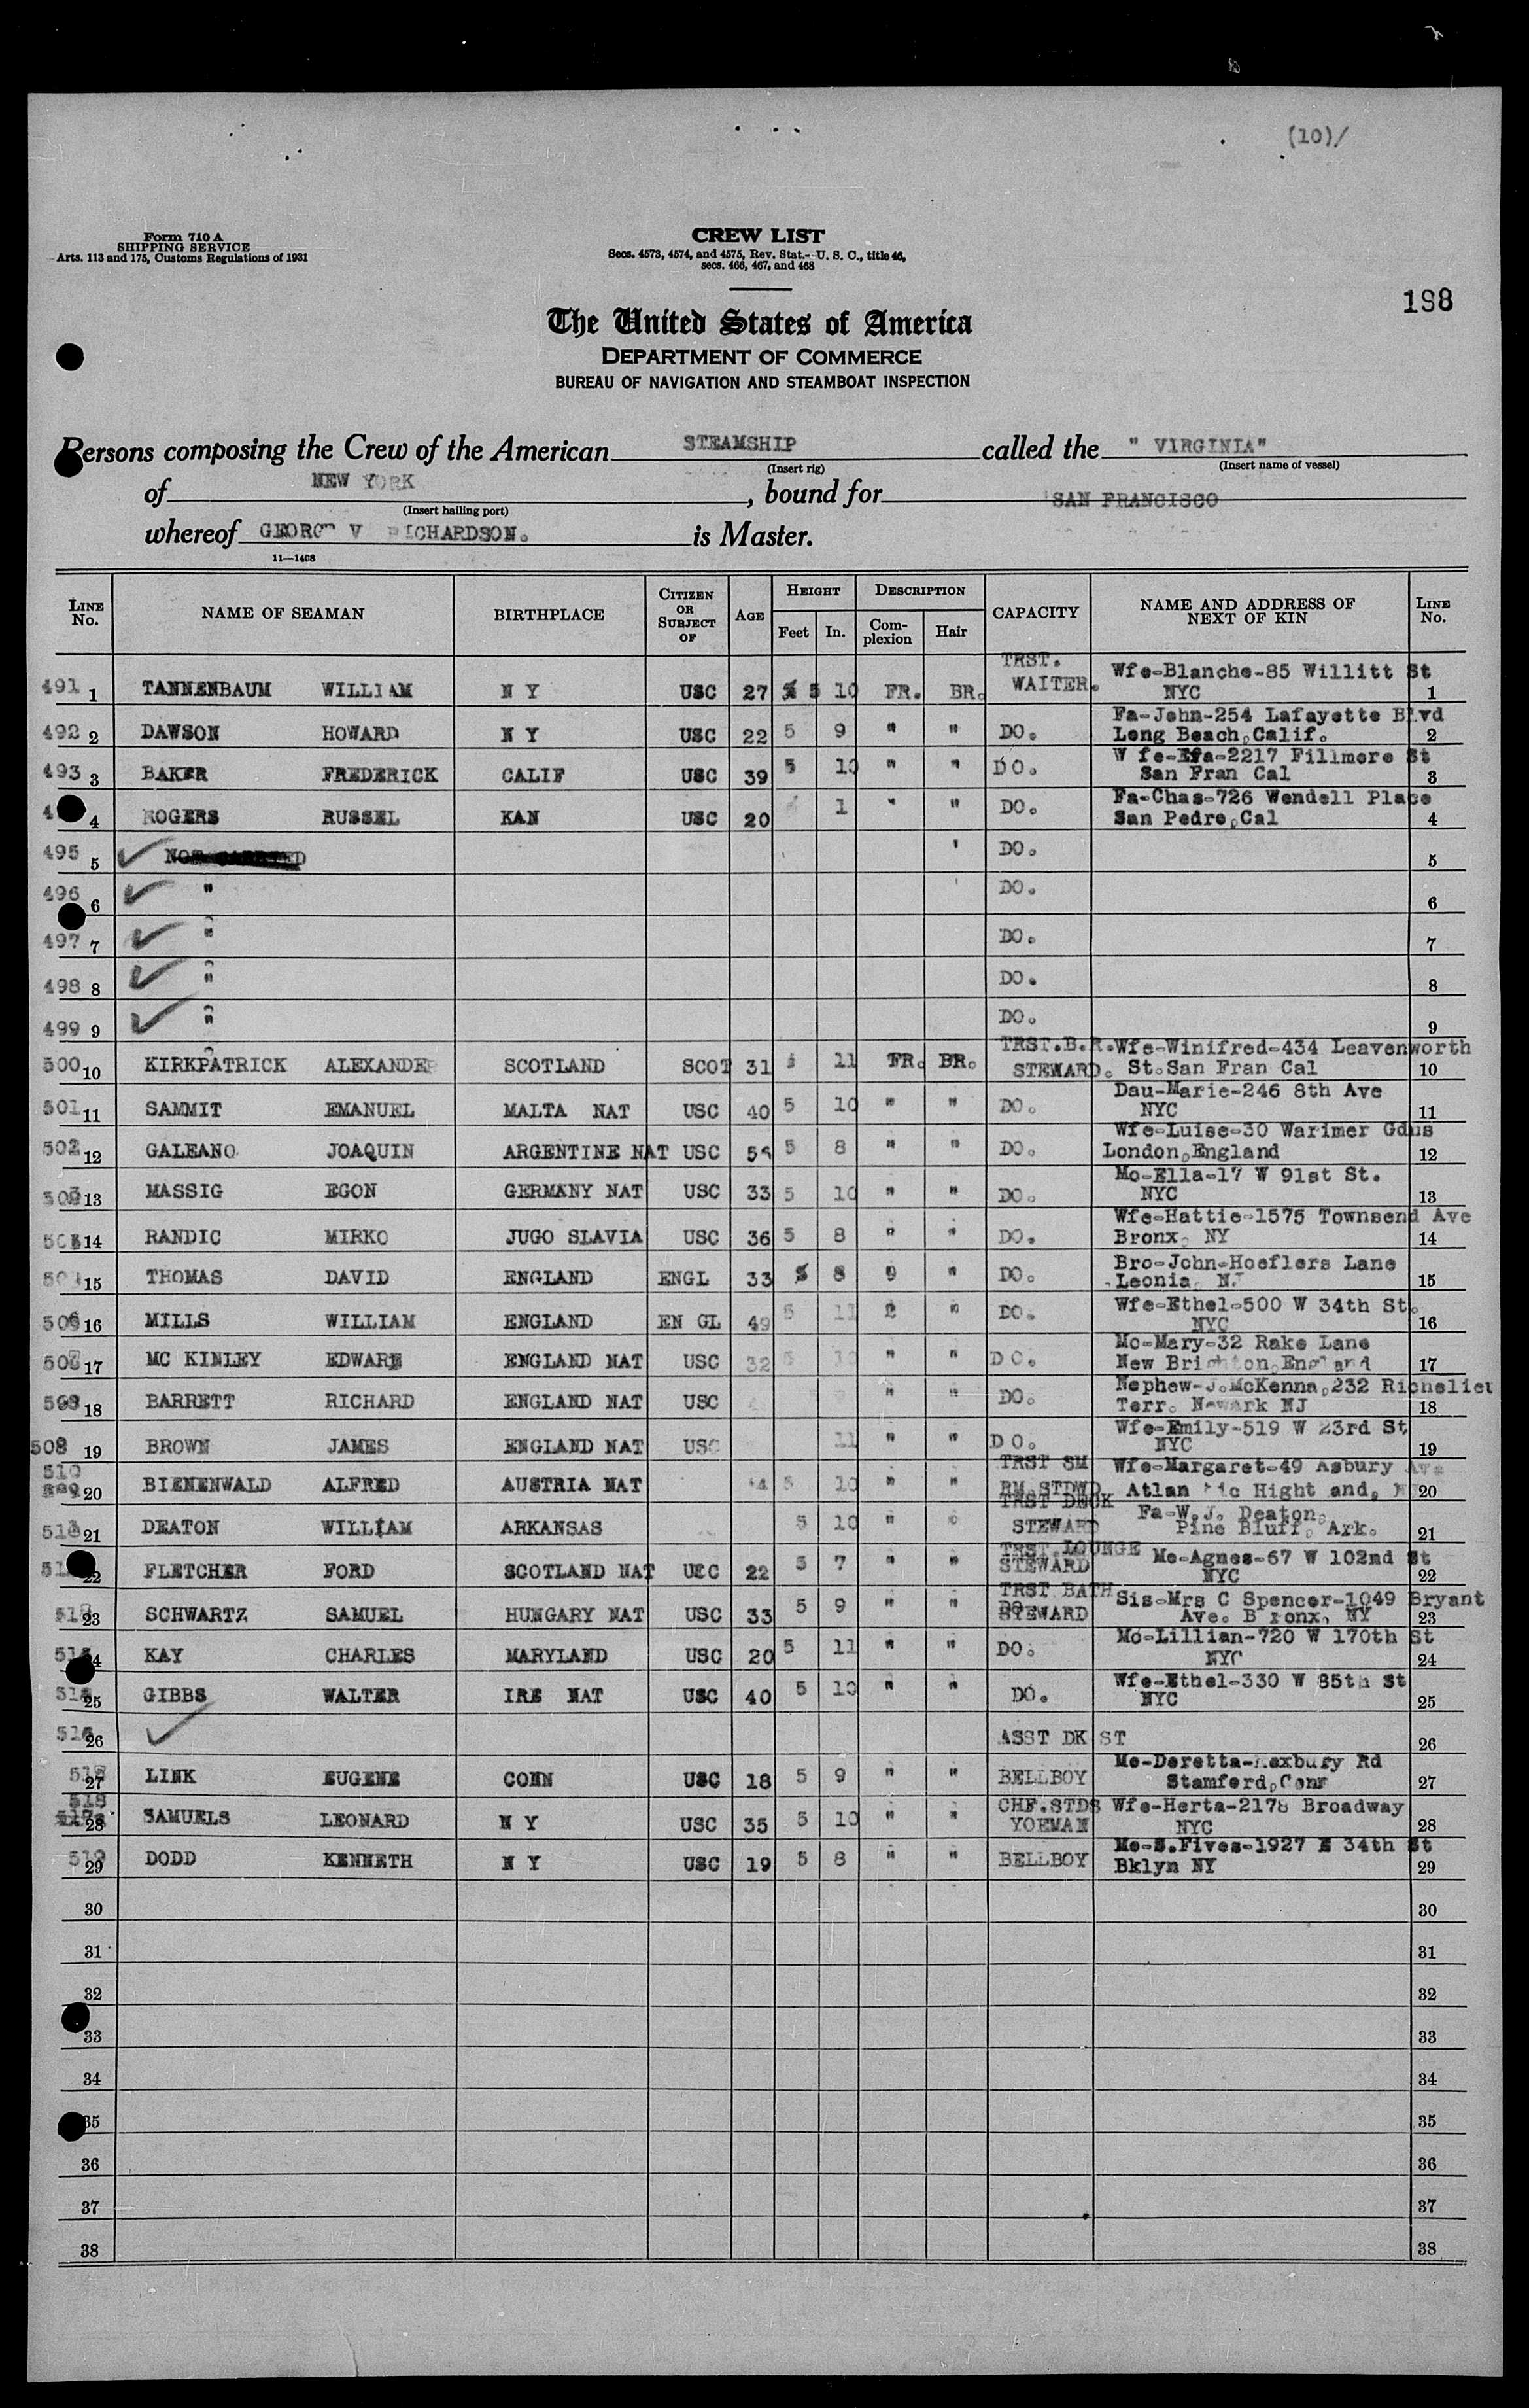 (10)/
Form 710 A
SHIPPING SERVICE
Arts. 113 and 175, Customs Regulations of 1931
CREW LIST
Secs. 4573, 4574, and 4575, Rev. Stat.--U. S. C., title 46,
secs. 466, 467, and 468
198
The United States of America
DEPARTMENT OF COMMERCE
BUREAU OF NAVIGATION AND STEAMBOAT INSPECTION
Persons composing the Crew of the American STEAMSHIP called the " VIRGINIA"
(Insert rig) (Insert name of vessel)
of NEW YORK, bound for SAN FRANCISCO
(Insert hailing port)
whereof GEORG V RICHARDSON. is Master.
11—1408
LINE No. NAME OF SEAMAN BIRTHPLACE CITIZEN OR SUBJECT OF AGE HEIGHT Feet In. DESCRIPTION Complexion Hair CAPACITY NAME AND ADDRESS OF NEXT OF KIN LINE No.
491 1 TANNENBAUM WILLIAM N Y USC 27 5 10 FR. BR. TRST. WAITER. Wfe-Blanche-85 Willitt St NYC 1
492 2 DAWSON HOWARD N Y USC 22 5 9 " " DO. Fa-John-254 Lafayette Blvd Long Beach,Calif. 2
493 3 BAKER FREDERICK CALIF USC 39 5 10 " " DO. W fe-Efa-2217 Fillmore St San Fran Cal 3
4 ROGERS RUSSEL KAN USC 20 1 " " DO. Fa-Chas-726 Wendell Place San Pedro,Cal 4
495 5 DO. 5
496 6 " DO. 6
497 7 " DO. 7
498 8 " DO. 8
499 9 " DO. 9
500 10 KIRKPATRICK ALEXANDER SCOTLAND SCOT 31 11 FR. BR. TRST.B.R. STEWARD. Wfe-Winifred-434 Leavenworth St.San Fran Cal 10
501 11 SAMMIT EMANUEL MALTA NAT USC 40 5 10 " " DO. Dau-Marie-246 8th Ave NYC 11
502 12 GALEANO JOAQUIN ARGENTINE NAT USC 5 8 " " DO. Wfe-Luise-30 Warimer Gdns London,England 12
13 MASSIG EGON GERMANY NAT USC 33 5 10 " " DO. Mo-Ella-17 W 91st St. NYC 13
14 RANDIC MIRKO JUGO SLAVIA USC 36 5 8 " " DO. Wfe-Hattie-1575 Townsend Ave Bronx, NY 14
15 THOMAS DAVID ENGLAND ENGL 33 5 8 " DO. Bro-John-Hoeflers Lane Leonia, NJ 15
16 MILLS WILLIAM ENGLAND EN GL 49 5 11 " DO. Wfe-Ethel-500 W 34th St. NYC 16
17 MC KINLEY EDWARD ENGLAND NAT USC 32 5 10 " " DO. Mo-Mary-32 Rake Lane New Brighton,England 17
18 BARRETT RICHARD ENGLAND NAT USC " " DO. Nephew-J.McKenna,232 Richelieu Terr. Newark NJ 18
19 BROWN JAMES ENGLAND NAT USC 11 " " DO. Wfe-Emily-519 W 23rd St NYC 19
510 20 BIENENWALD ALFRED AUSTRIA NAT 5 10 " " TRST SM RM STDWD Wfe-Margaret-49 Asbury Ave Atlantic Hight and, 20
21 DEATON WILLIAM ARKANSAS 5 10 " " TRST DECK STEWARD Fa-W.J. Deaton, Pine Bluff, Ark. 21
22 FLETCHER FORD SCOTLAND NAT USC 22 5 7 " " TRST LOUNGE STEWARD Mo-Agnes-67 W 102nd St NYC 22
23 SCHWARTZ SAMUEL HUNGARY NAT USC 33 5 9 " " TRST BATH STEWARD Sis-Mrs C Spencer-1049 Bryant Ave. Bronx, NY 23
24 KAY CHARLES MARYLAND USC 20 5 11 " " DO. Mo-Lillian-720 W 170th St NYC 24
25 GIBBS WALTER IRE NAT USC 40 5 10 " " DO. Wfe-Ethel-330 W 85th St NYC 25
26 ASST DK ST 26
27 LINK EUGENE CONN USC 18 5 9 " " BELLBOY Mo-Deretta-Roxbury Rd Stamford,Conn 27
518 28 SAMUELS LEONARD N Y USC 35 5 10 " " CHF.STDS YOEMAN Wfe-Herta-2178 Broadway NYC 28
519 29 DODD KENNETH N Y USC 19 5 8 " " BELLBOY Mo-S.Fives-1927 E 34th St Bklyn NY 29
30 30
31 31
32 32
33 33
34 34
35 35
36 36
37 37
38 38